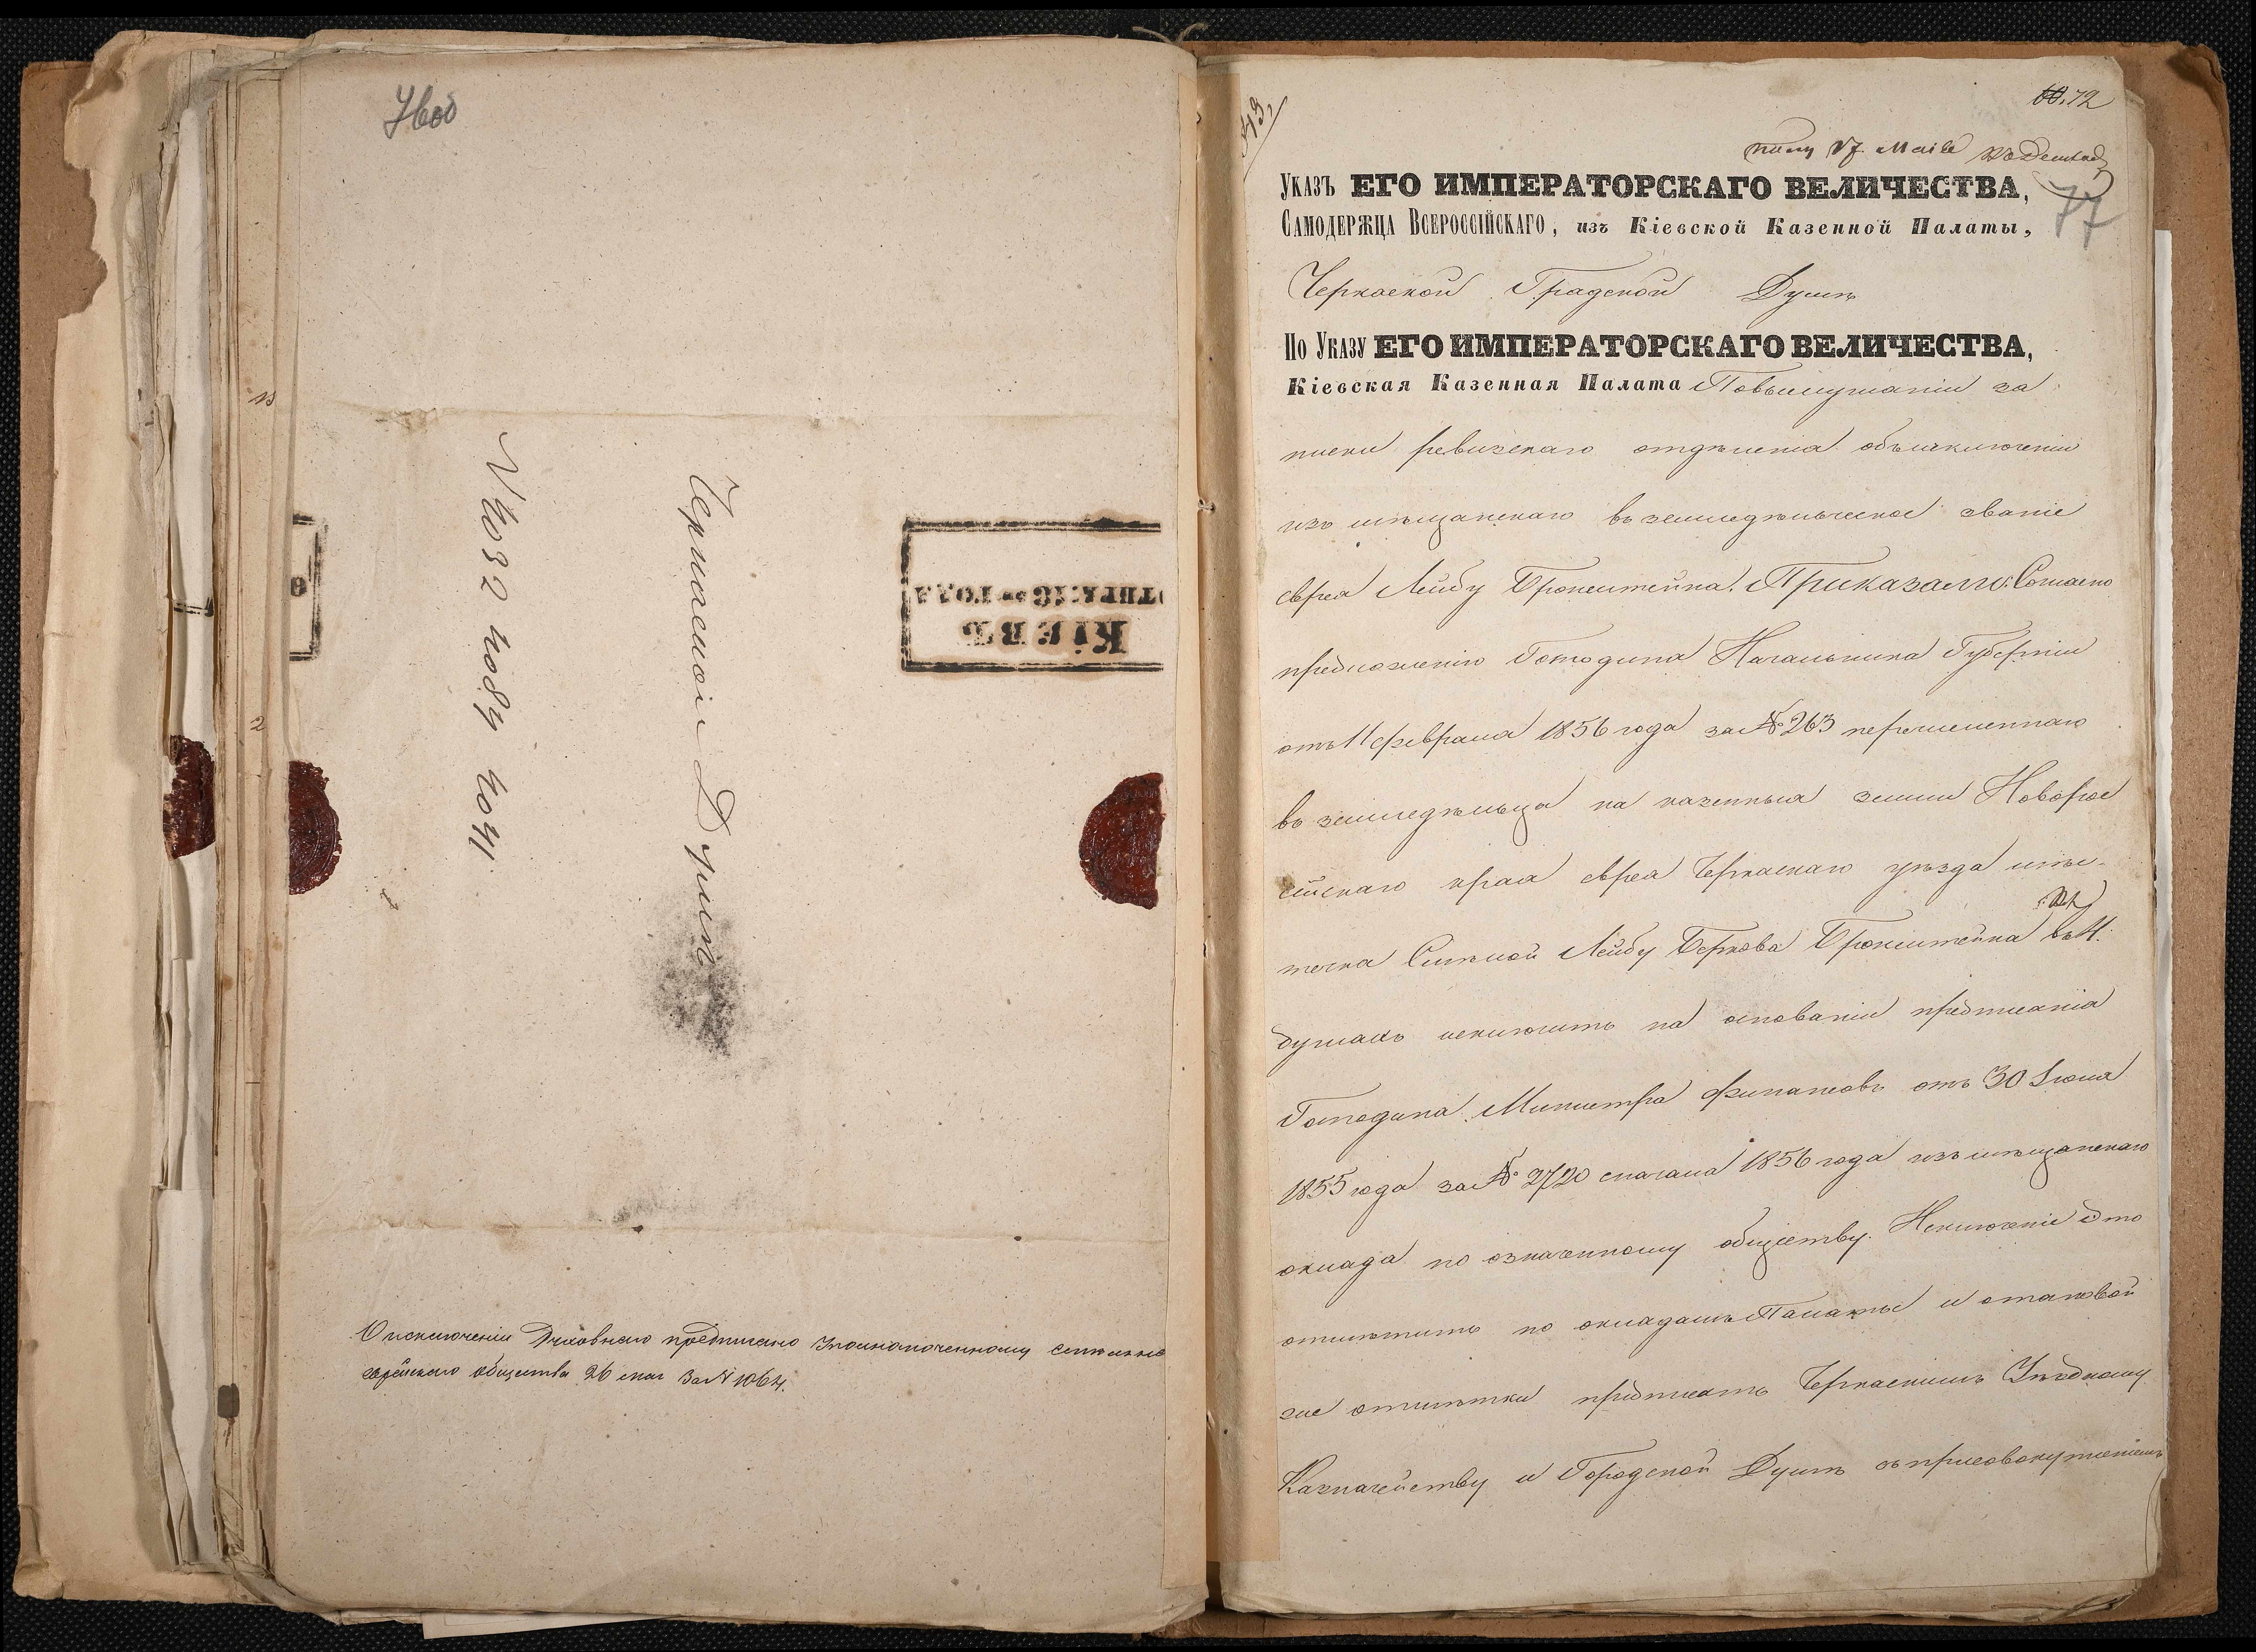 76об
№ 4032 4084 4041
Черкаской Думѣ
КІЕВЪ
О исключеніи Духовнаго предписано Уполномоченному Смѣлянск
еврейскаго общества 26 мая за № 1064.
72
17 Маія
77
Указъ ЕГО ИМПЕРАТОРСКАГО ВЕЛИЧЕСТВА,
Самодержца Всероссійскаго, изъ Кіевской Казенной Палаты,
Черкаской Градской Думѣ
По Указу ЕГО ИМПЕРАТОРСКАГО ВЕЛИЧЕСТВА,
Кіевская Казенная Палата По выслушаніи за
писки ревизскаго отдѣленія объ исключеніи
изъ мѣщанскаго въ земледѣльческое званіе
еврея Лейбу Бронштейна. Приказали: Согласно
предложенію Господина Начальника Губерніи
отъ 11 февраля 1856 года за № 263 перечисленнаго
въ земледѣльца на казенныя земли Новорос
сійскаго края еврея Черкаскаго уѣзда мѣс-
течка Смѣлой Лейбу Беркова Бронштейна въ 4.
душахъ исключить на основаніи предписанія
Господина Министра Финансовъ отъ 30 Іюля
1855 года за № 2720 сначала 1856 года изъ мѣщанскаго
оклада по означенному обществу. Исключеніе это
отмѣтить по окладамъ Палаты и о таковой
же отмѣтки предписать Черкаскимъ Уѣздному
Казначейству и Городской Думѣ съ присовокупленіемъ